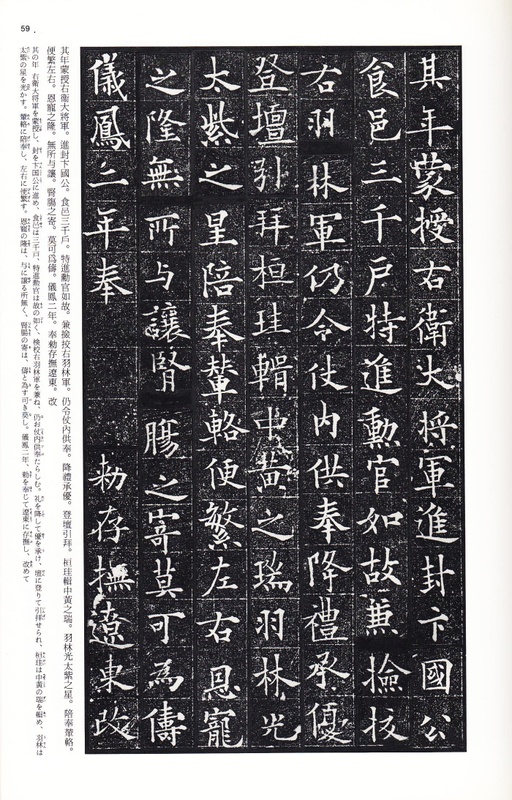 其年蒙授右衛大将軍進封卞國公
食邑三千戸特進勲官如故蕪撿挍
右羽林軍仍令仗内供奉降禮承優
登壇引拜桓珪輯中黄之瑞羽林光
太紫之星陪奉輦輅便繁左右恩寵
之隆無所与讓腎膓之寄莫可為儔
儀鳳二年奉 勑存撫遼東改
其年蒙授右衛大将軍。進封卞國公。食邑三千戸。特進勲官如故。兼撿挍右羽林軍。仍令仗内供奉。降禮承優。登壇引拜。桓珪輯中黄之瑞。羽林光太紫之星。陪奉輦輅。
便繁左右。恩寵之隆。無所与讓。腎膓之寄。莫可爲儔。儀鳳二年。奉勑存撫遼東。改
其の年 右衛大将軍を蒙授し、封を卞国公に進め、食邑は三千戸、特進勲官は故の如く、検校右羽林軍を兼ね、仍お仗内供奉たらしむ。礼を降して優を承け、壇に登りて引拝せられ、桓珪は中黄の瑞を輯め、羽林は
太紫の星を光かす。輦輅に陪奉し、左右に便繁す。恩寵の隆は、与に譲る所無く、腎腸の寄は、儔と為す可き莫し。儀鳳二年、勅を奉じて遼東に存撫し、改めて
59